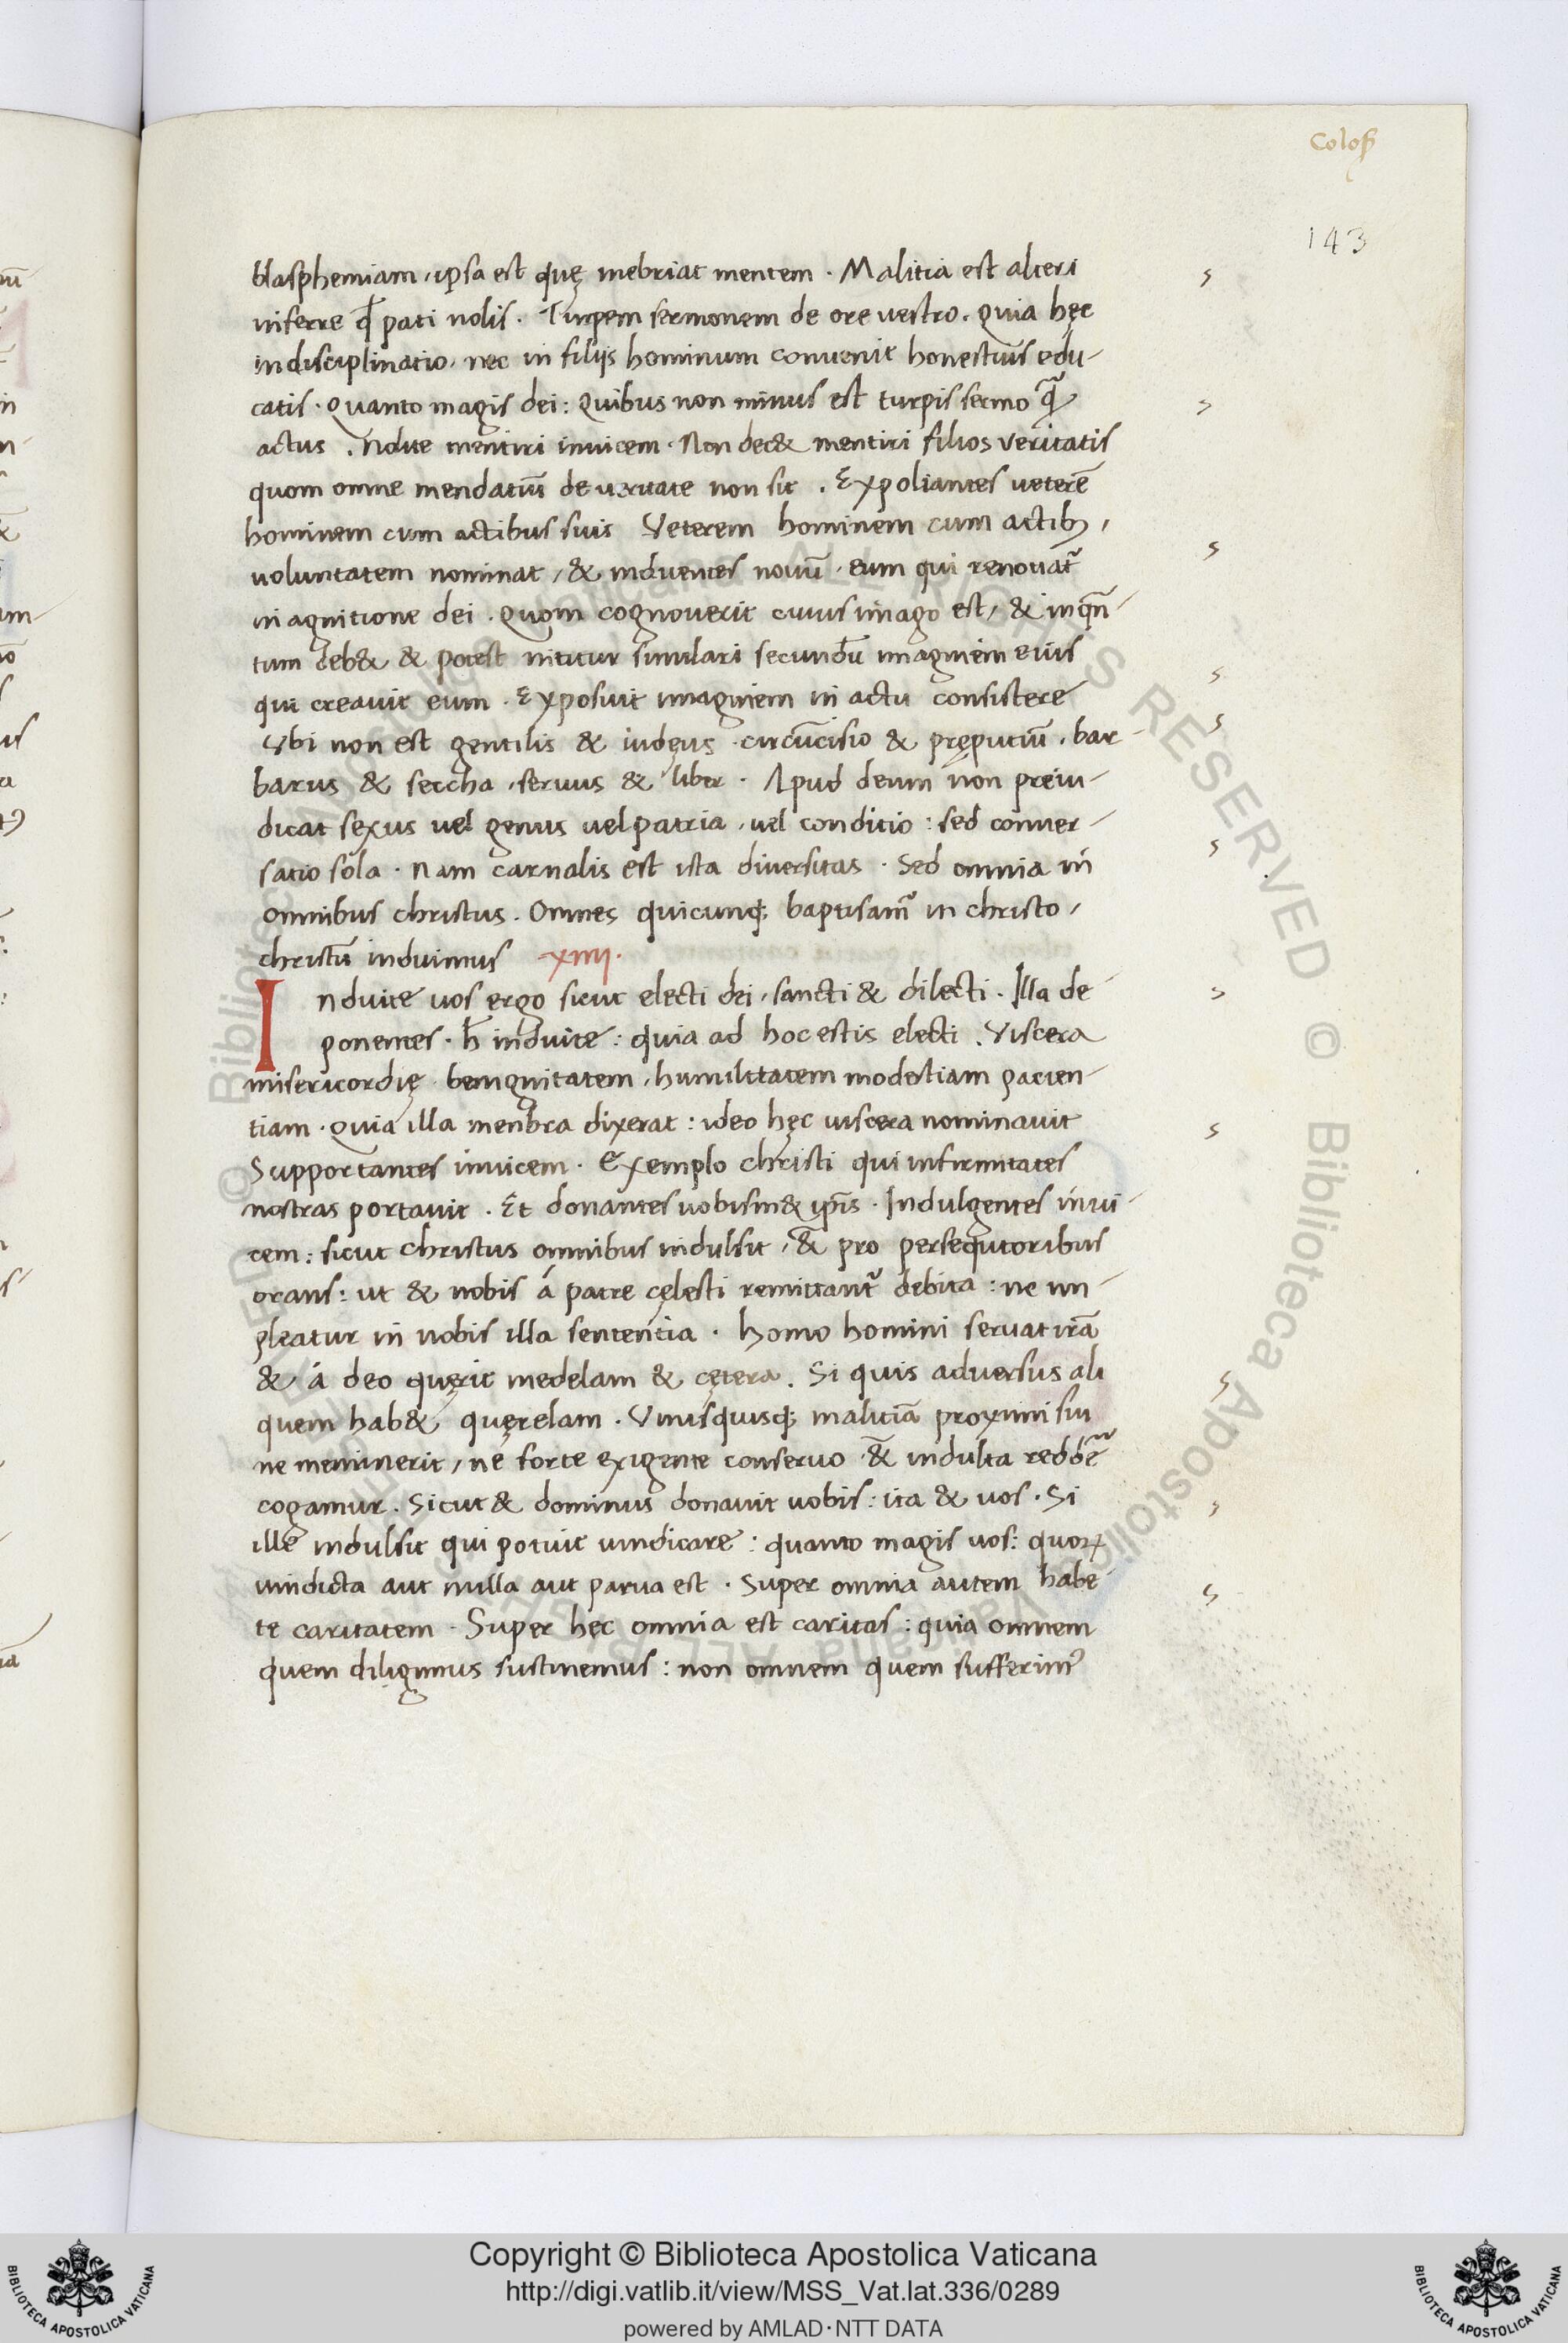 Coloss
143
blasphemiam, ipsa est quę inebriat mentem . Malitia est alteri
inferre qđ pati nolis . Turpem sermonem de ore vestro . Quia hęc
indisciplinatio, nec in filijs hominum convenit honestius edu-
catis . Quanto magis dei : Quibus non minus est turpis sermo q̃
actus . Nolite mentiri invicem . Non dec& mentiri filios veritatis
quom omne mendatiũ de veritate non sit . Expoliantes veterẽ
hominem cum actibus suis Veterem hominem cum actib;,
voluntatem nominat, & induentes novũ . eum qui renovat᷑
in agnitione dei . Quom cognoverit cuius imago est, & inqñ-
tum deb& & potest nititur simulari secundũ imaginem eius
qui creavit eum . Exposuit imaginem in actu consistere
Ubi non est gentilis & iudęus . circũcisio & pręputiũ . bar-
barus & scecha . servus & liber . Apud deum non preiu-
dicat sexus vel genus vel patria, vel conditio : sed conver-
satio sola . Nam carnalis est ista diversitas . Sed omnia in
omnibus christus . Omnes quicunq; baptisam᷑ in christo,
christũ induimus xiiij.
Induite vos ergo sicut electi dei, sancti & dilecti . Illa de
ponentes . h̃ induite : quia ad hoc estis electi . Viscera
misericordię . benignitatem, humilitatem modestiam pacien-
tiam . Quia illa menbra dixerat : ideo hęc viscera nominavit
Supportantes invicem . Exemplo christi qui infirmitates
nostras portavit . Et donantes vobism& ip̃is . Indulgentes invi-
cem : sicut christus omnibus indulsit, &̃ pro persequtoribus
orans : ut & nobis á patre cęlesti remittant᷑ debita : ne im-
pleatur in nobis illa sententia . homo homini servat irã
& á deo quęrit medelam & cętera . Si quis adversus ali
quem hab& quęrelam . Unusquisq; malitiã proximi sui
ne meminerit, ne forte exigente conservo &̃ indulta reddẽ
cogamur . Sicut & dominus donavit vobis : ita & vos . Si
ille indulsit qui potuit vindicare : quanto magis vos : quoꝝ
vindicta aut nulla aut parva est . Super omnia autem habe-
te caritatem . Super hęc omnia est caritas : quia omnem
quem diligimus sustinemus : non omnem quem sufferim᾽
Copyright © Biblioteca Apostolica Vaticana
http://digi.vatlib.it/view/MSS_Vat.lat.336/0289
powered by AMLAD·NTT DATA
BIBLIOTECA APOSTOLICA VATICANA
BIBLIOTECA APOSTOLICA VATICANA